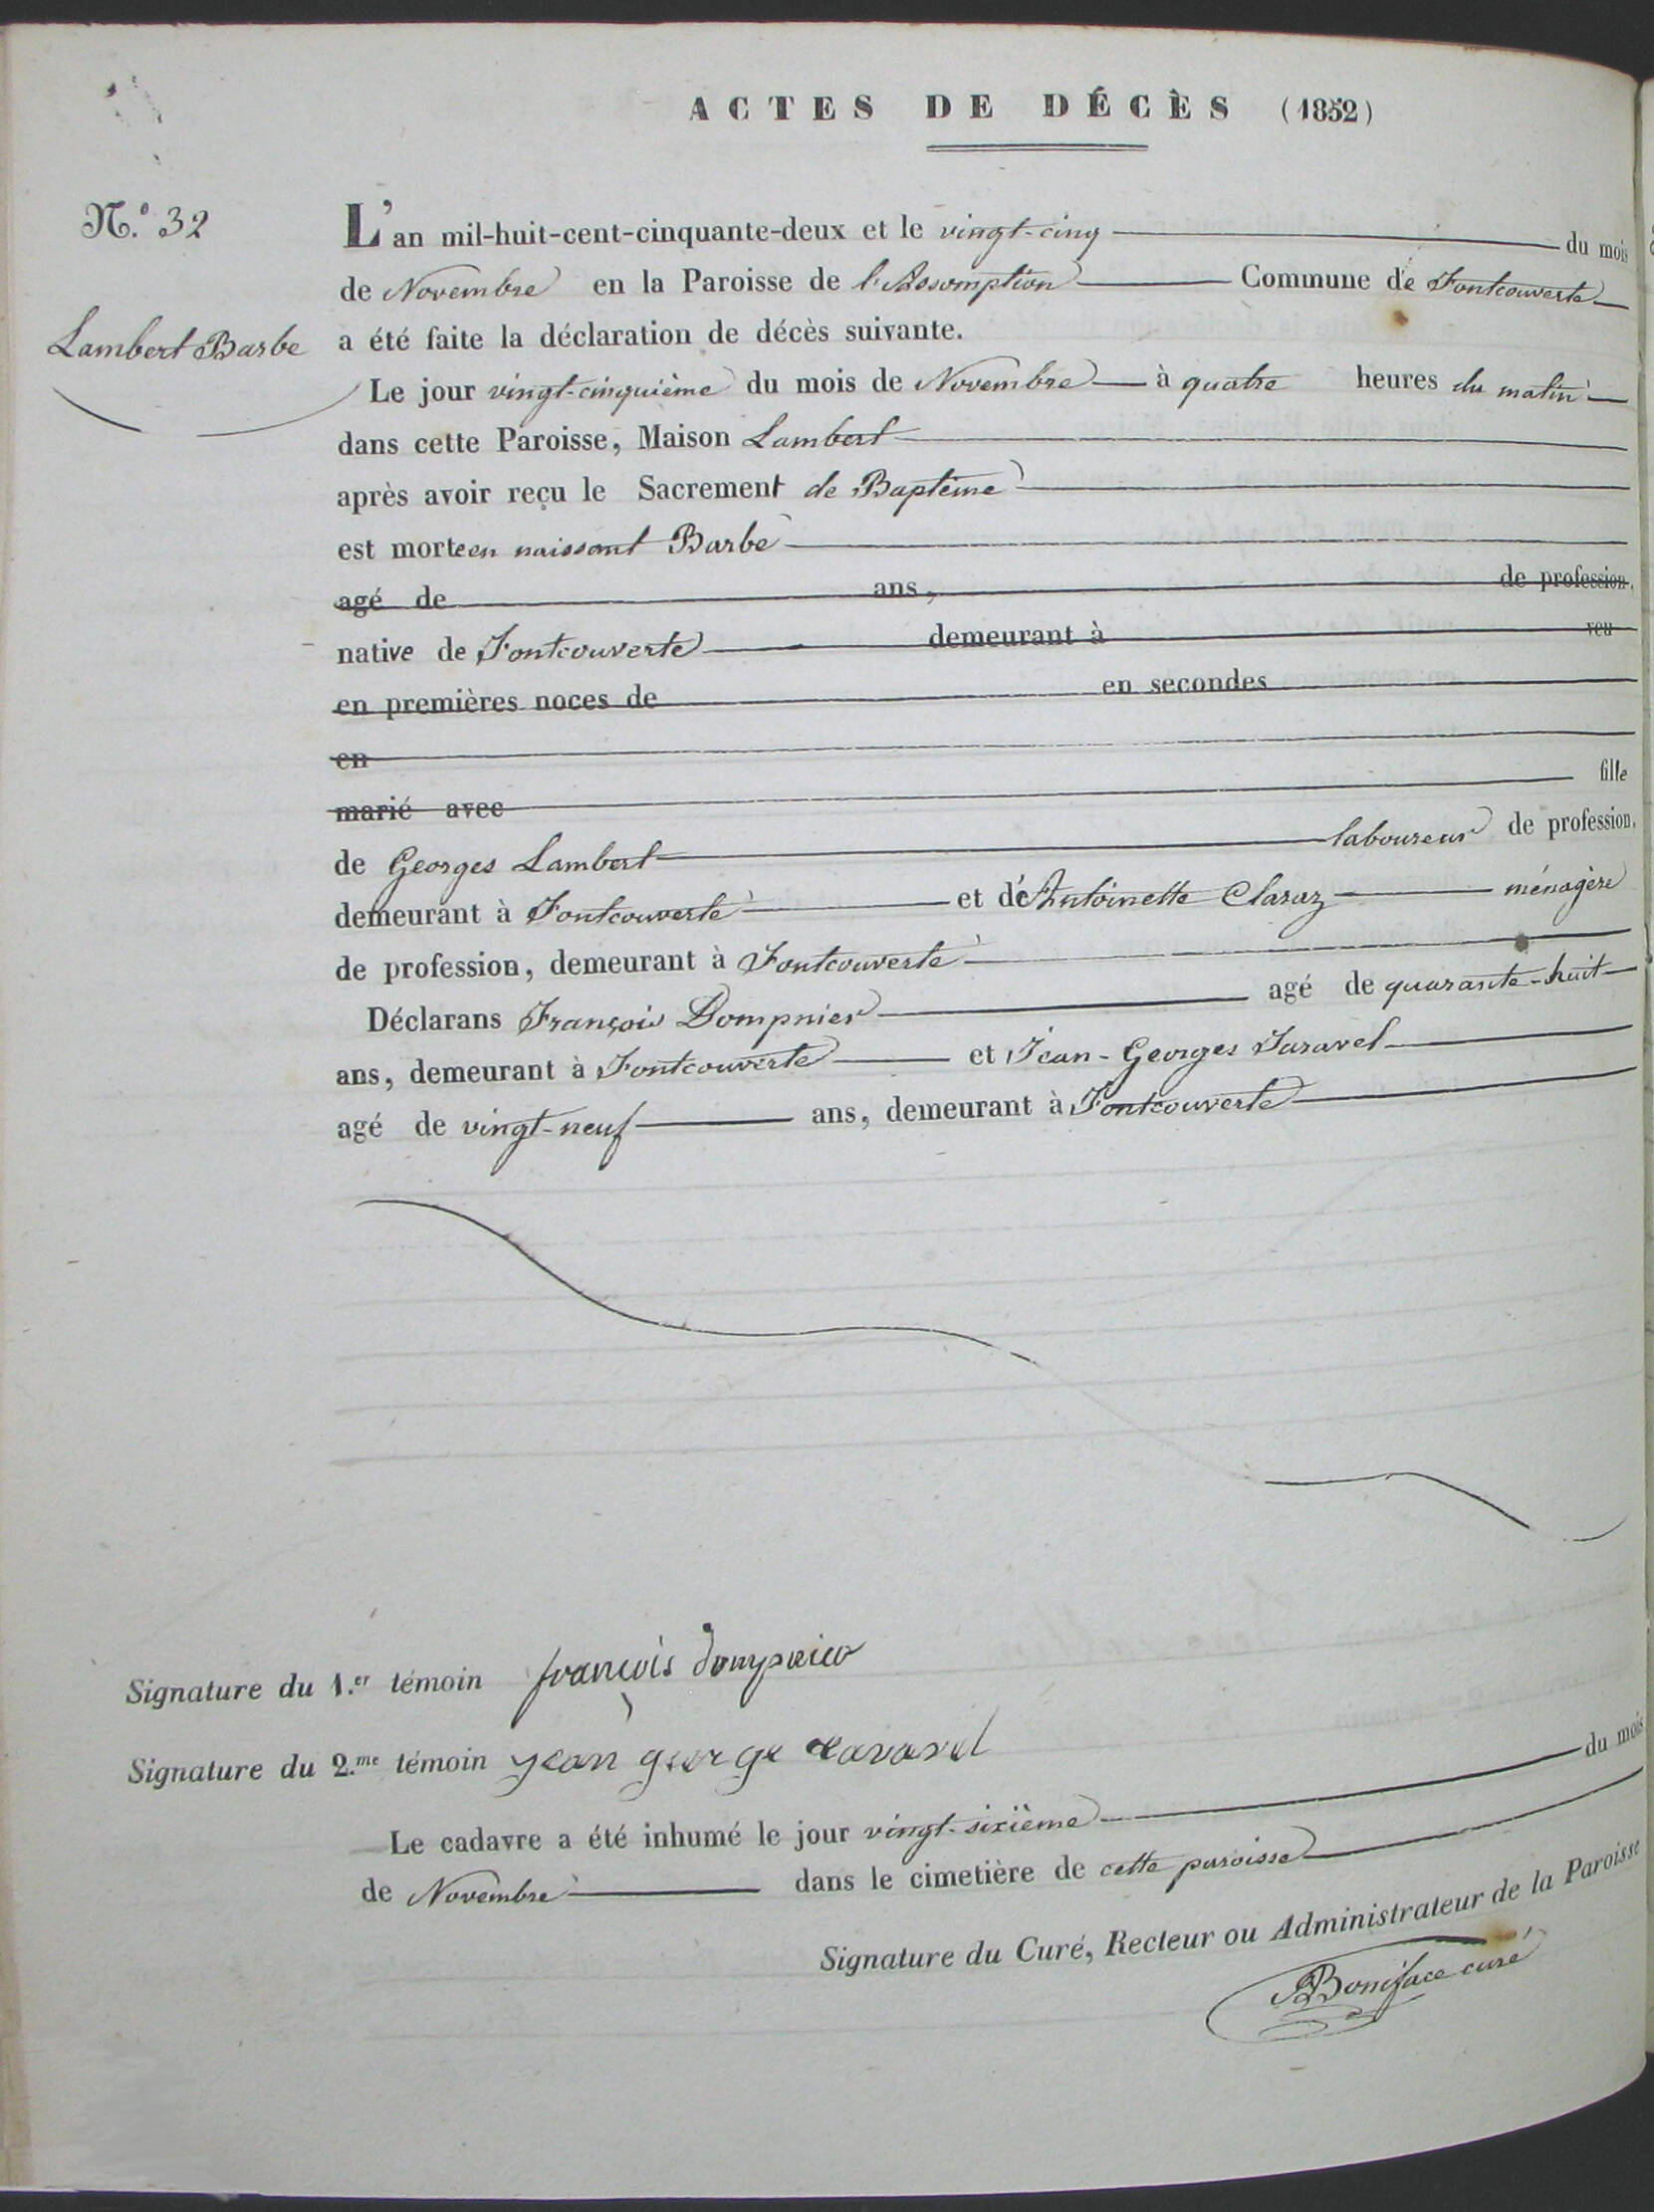 ACTES DE DÉCÈS (1852)
N.° 32
Lambert Barbe
L'an mil-huit-cent-cinquante-deux et le vingt-cinq du mois
de Novembre en la Paroisse de l'Assomption Commune de Fontcouverte
a été faite la déclaration de décès suivante.
Le jour vingt-cinquième du mois de Novembre à quatre heures du matin
dans cette Paroisse, Maison Lambert
après avoir reçu le Sacrement de Baptême
est morte en naissant Barbe
agé de ans, de profession.
native de Fontcouverte demeurant à veu
en premières noces de en secondes
en
marié avec fille
de Georges Lambert laboureur de profession.
demeurant à Fontcouverte et de Antoinette Claraz ménagère
de profession, demeurant à Fontcouverte
Déclarans François Dompnier agé de quarante-huit
ans, demeurant à Fontcouverte et Jean-Georges Taravel
agé de vingt-neuf ans, demeurant à Fontcouverte
Signature du 1.er témoin françois dompnier
Signature du 2.me témoin jean george taravel
Le cadavre a été inhumé le jour vingt-sixième du mois
de Novembre dans le cimetière de cette paroisse
Signature du Curé, Recteur ou Administrateur de la Paroisse
Boniface curé